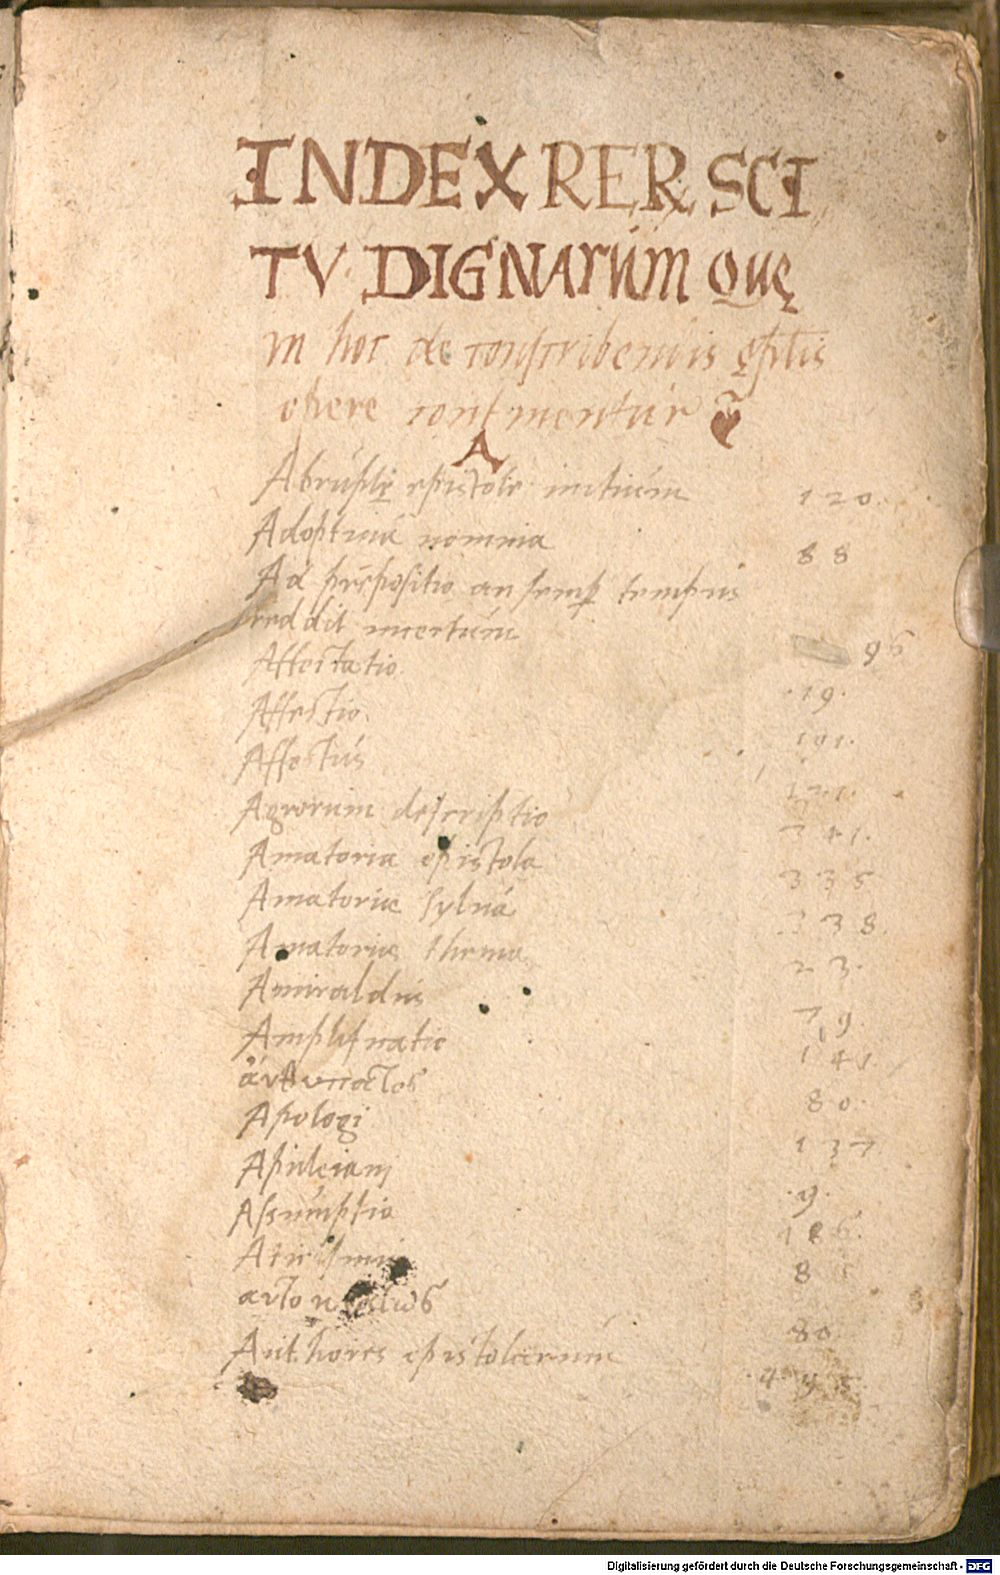 INDEX RER SCI
TV DIGNARUM Quę
in hoc de conscribendis ep̄istlis
opere continentur
A
Abruptę epistole initium 120.
Adoptiua nomina 88
Ad prępositio an semp tempus
reddit incertum 96
Affectatio. 19.
Affectio. 101.
Affectus 121.
Agrorum descriptio 741.
Amatoria epistola 335
Amatorie sylua 338.
Amatorie thema 23.
Amiraldus 79.
Amplificatio 141.
80.
Apologi 137
Apuleiani 9.
Assumptio 186.
8
80
Authores epistolarum
Digitalisierung gefördert durch die Deutsche Forschungsgemeinschaft - DFG